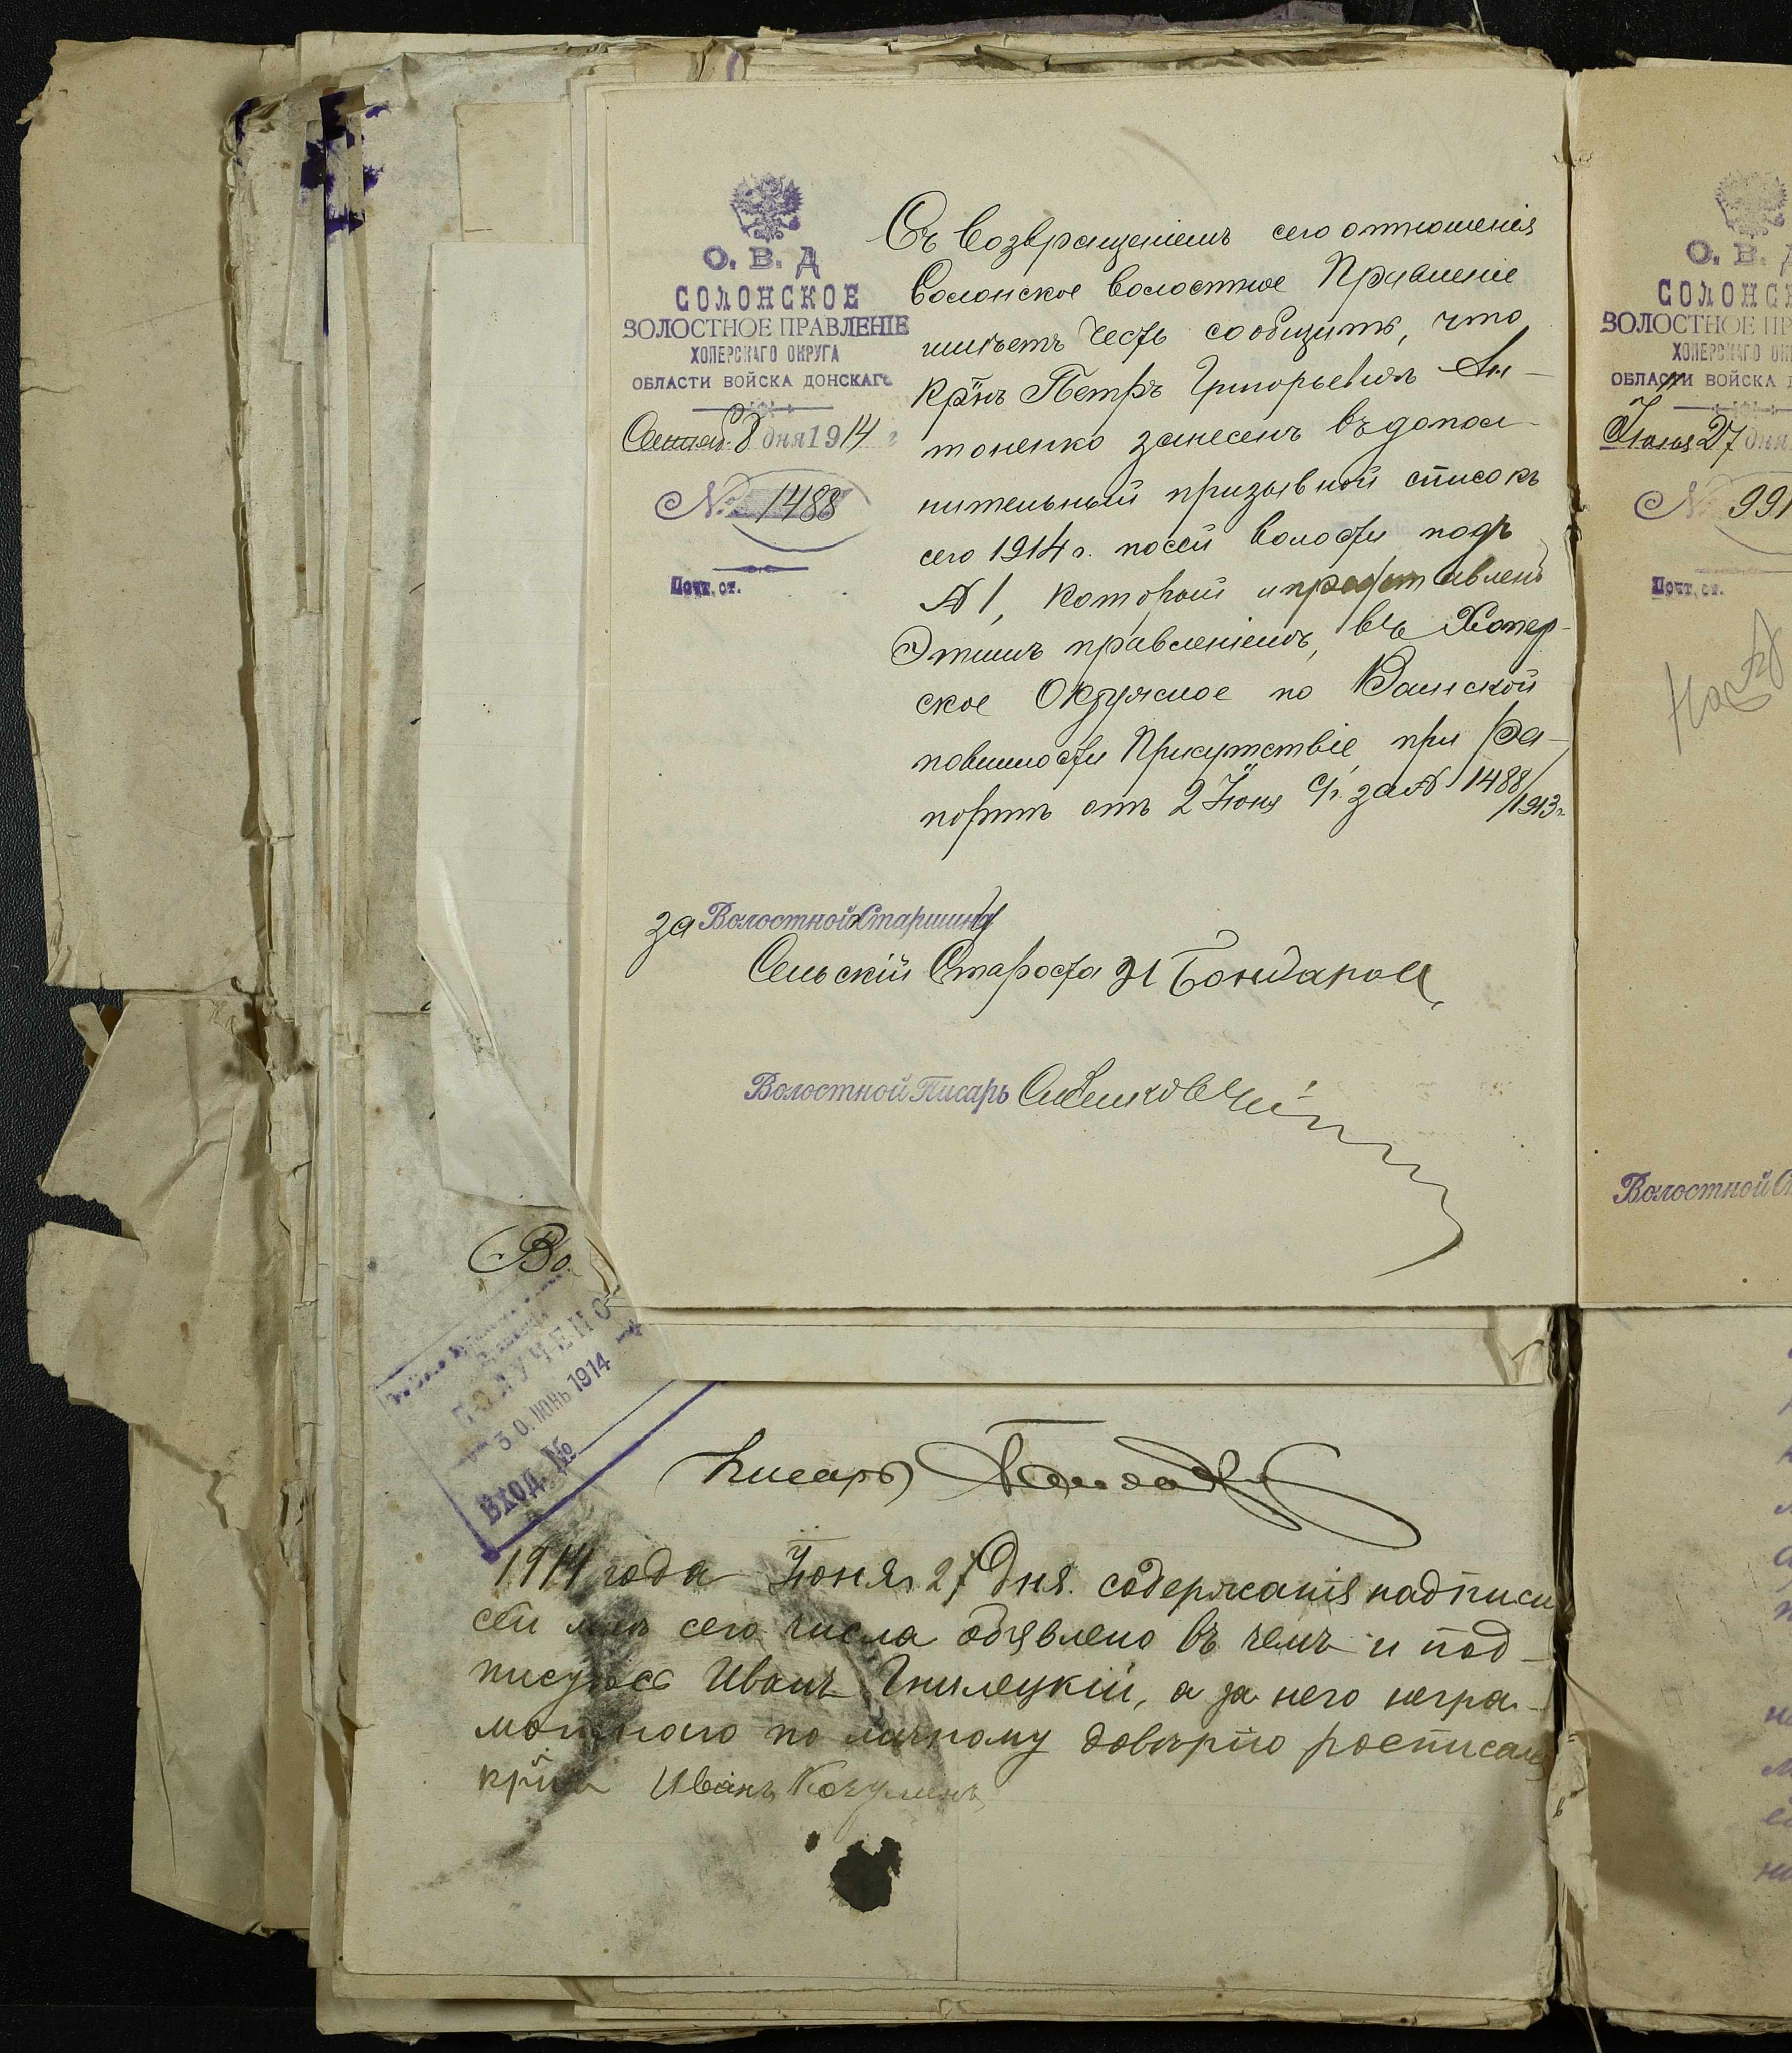 О. В. Д
СОЛОНСКОЕ
ВОЛОСТНОЕ ПРАВЛЕНІЕ
ХОПЕРСКАГО ОКРУГА
ОБЛАСТИ ВОЙСКА ДОНСКАГО
Сентяб. 8 дня 1914 г
№ 1488
Почт. ст.
Съ возвращеніемъ сего отношенія
Солонское волостное Правленіе
имѣетъ честь сообщить, что
кр̃нъ Петръ Григорьевичъ Ан-
тоненко занесенъ въ допол-
нительный призывной списокъ
сего 1914 г. по сей волости подъ
№ 1, который и представленъ
этимъ правленіемъ, въ Хопер-
ское Окружное по Воинской
повинности Присутствіе, при Ра-
портѣ отъ 2 Іюня с/г. за № 1488/1913 г.
за Волостной Старшины
Сельскій Староста И Бондаров
Волостной Писарь
Во.
ПОЛУЧЕНО
30. ІЮНЬ 1914
ВХОД. №
Писарь
1914 года Іюня 27 Дня. содержанія надписи
сей мнѣ сего числа объявлено въ чемъ и под-
писуюсь Иванъ Гнилецкій, а за него негра-
мотнаго по личному довѣрію росписался
кр̃нъ Иванъ
О. В. Д
СОЛОНСК
ВОЛОСТНОЕ ПР
ХОПЕРСКАГО ОК
ОБЛАСТИ ВОЙСКА Д
Іюня 27 дня
№ 991
Почт. ст.
На №
Волостной С